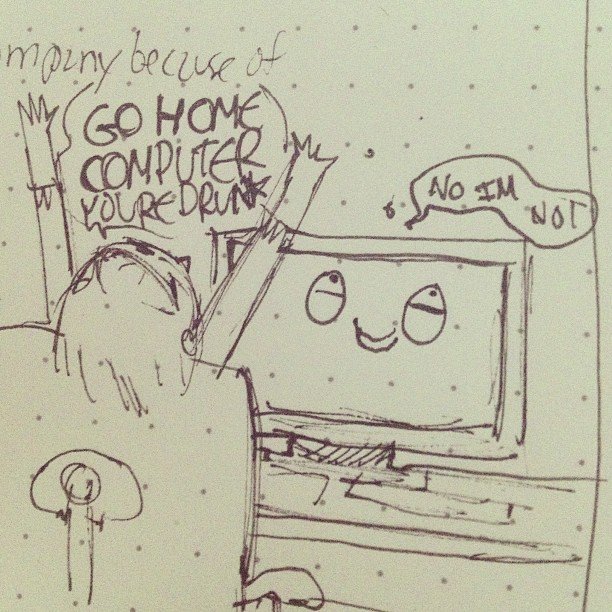 because of
GO HOME
COMPUTER
YOU'RE DRUNK
NO IM
NOT